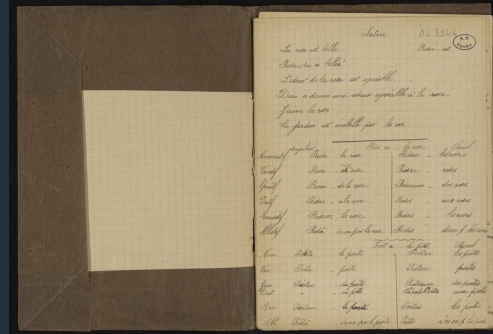 Latin
MS 3544
La rose est belle.
Rosa est
L'odeur de la rose est agréable.
Dieu a donné une odeur agréable à la rose
J'aime la rose
Le jardin est embelli par la rose
singulier
Pluriel
Nominatif Rosa la rose Rosae les roses
Vocatif Rosa rose Rosae roses
Génitif Rosae de la rose Rosarum des roses
Datif Rosae à la rose Rosis aux roses
Accusatif Rosam la rose Rosas les roses
Ablatif Rosā la rose Rosis
Pluriel
Nom Poëta le poëte Poëtae les poëtes
Voc Poëta poëte Poëtae poëtes
Gen Poëtae du poëte Poëtarum des poëtes
Dat au poëte Poëtis aux poëtes
Acc Poëtam le poëte Poëtas les poëtes
Abl Poëtā le poëte